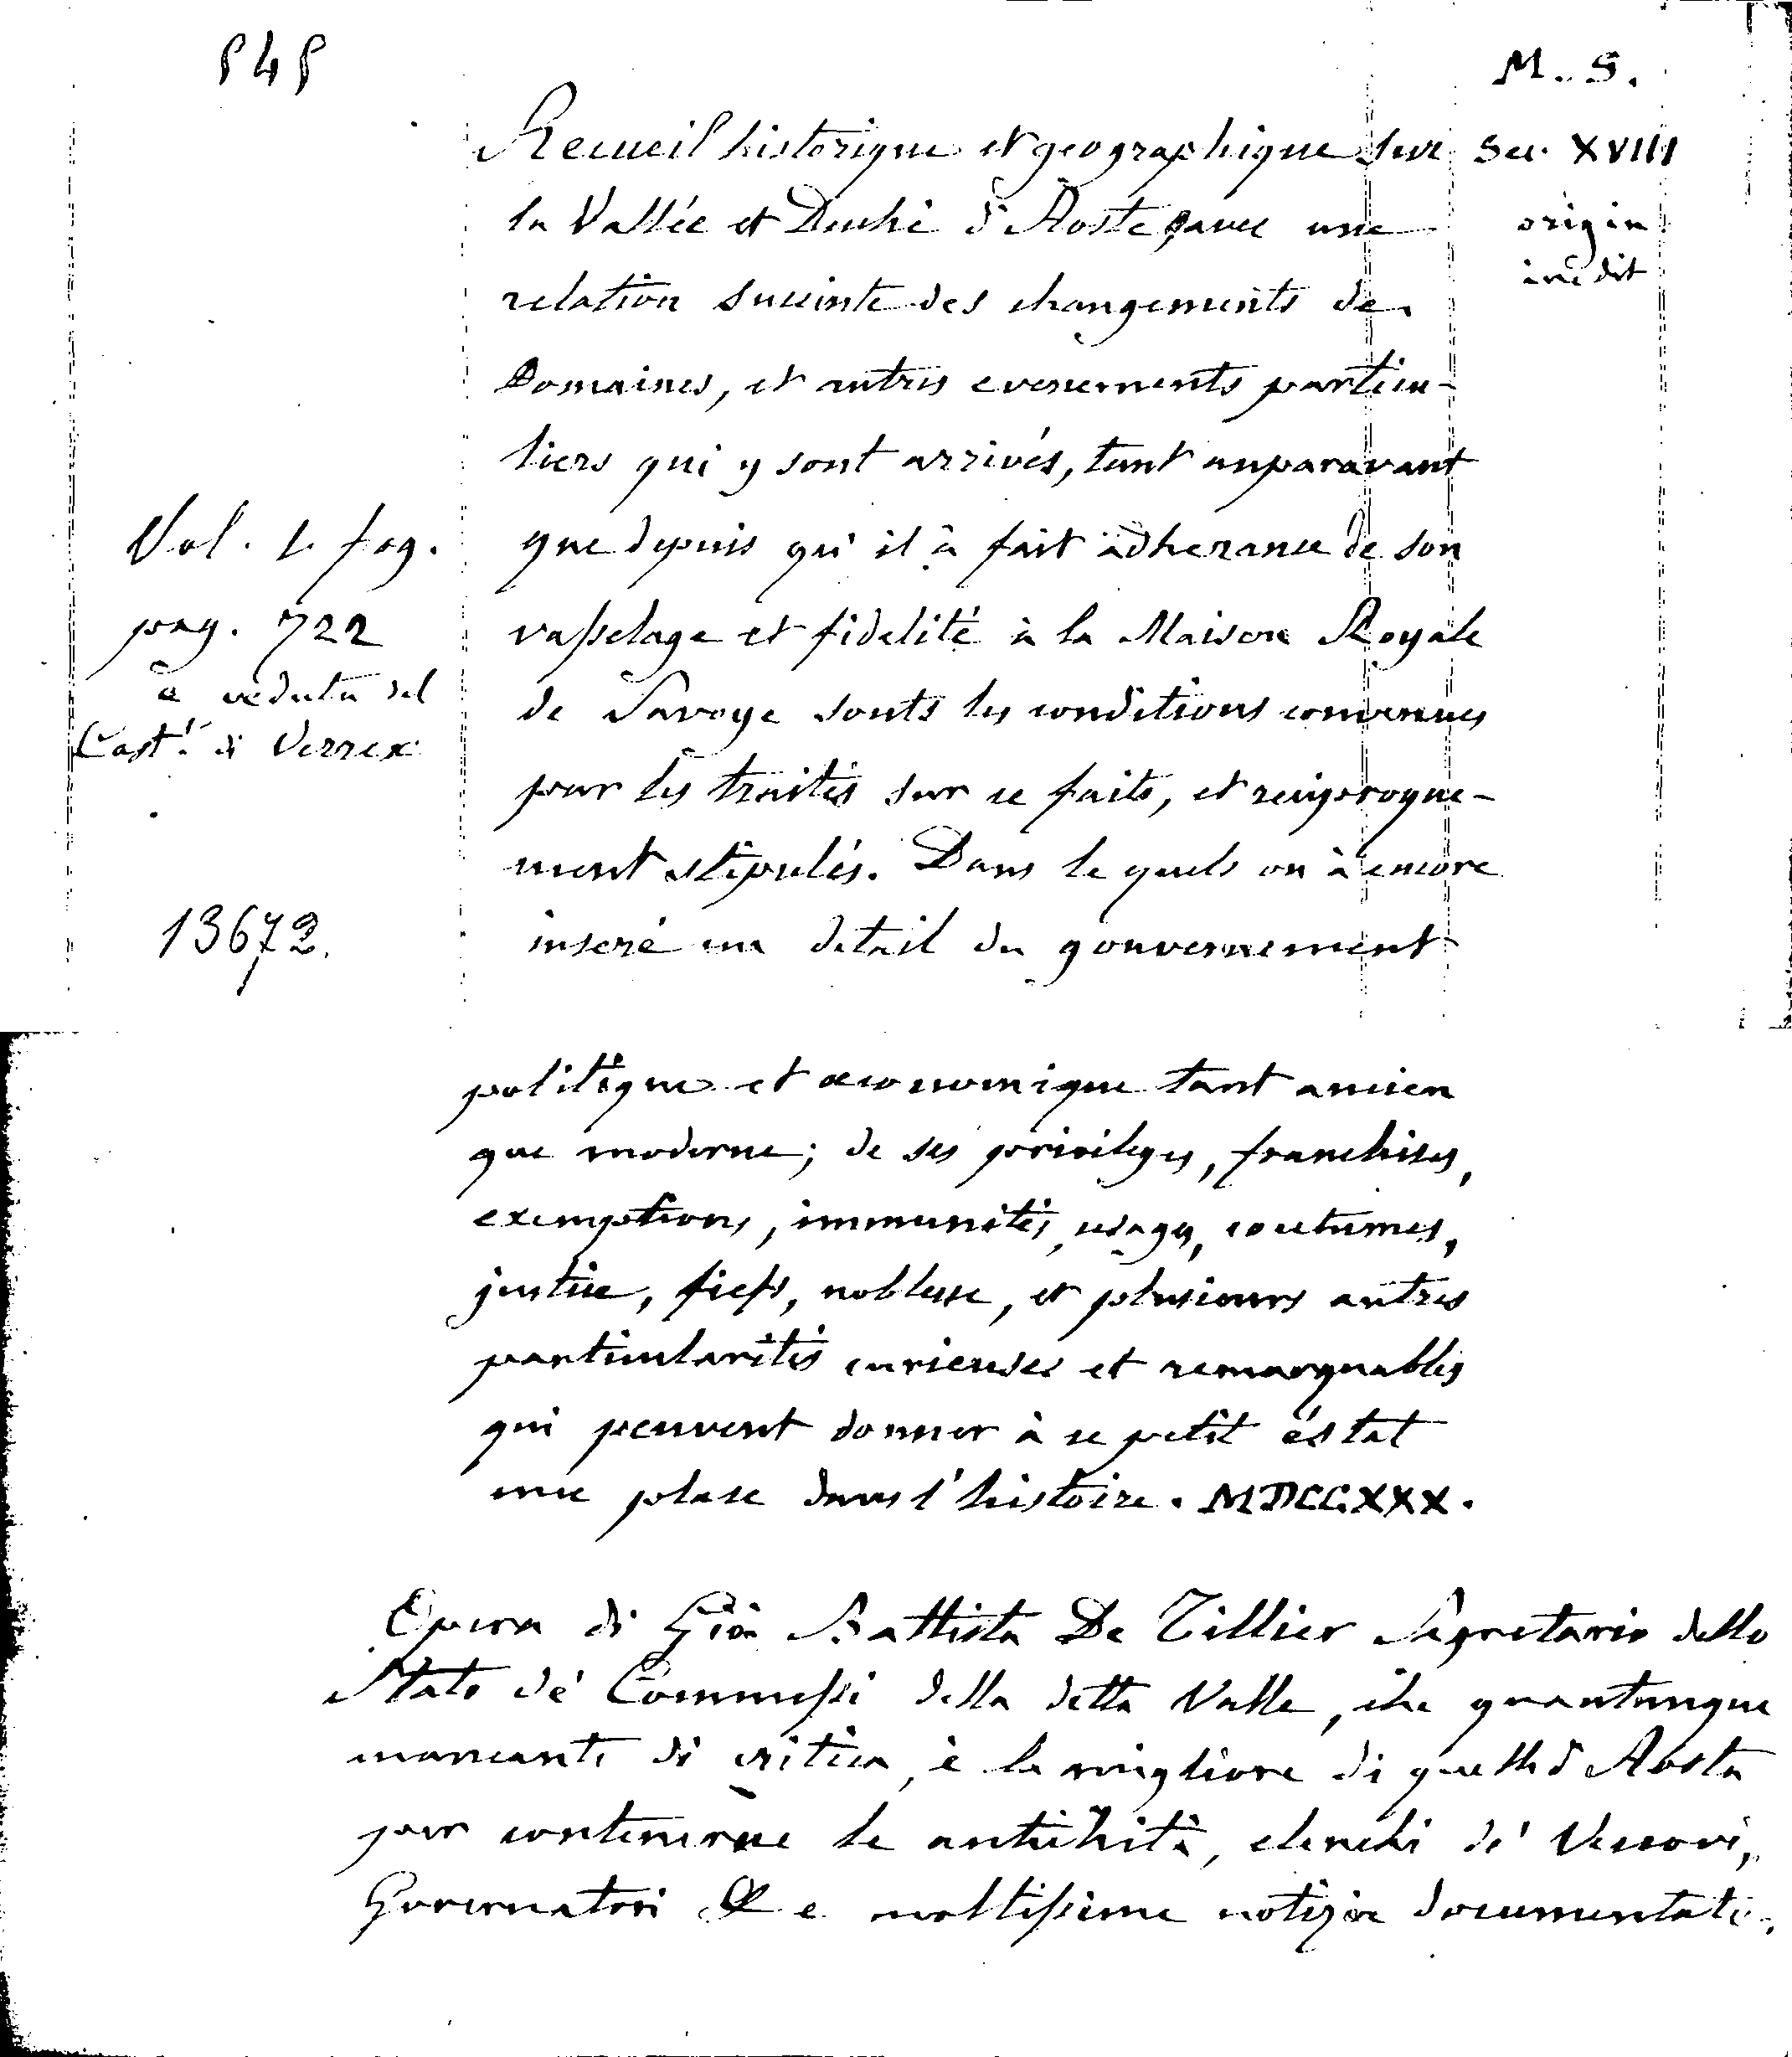 545
M. S.
Recueil historique et geographique sur
Sec. XVIII
la Vallée et Duché d'Aoste avec une
origin
relation succinte des changements de
inedit
Domaines, et autres evenements particu-
liers qui y sont arrivés, tant auparavant
Vol. 1. fog.
que depuis qu'il à fait adherance de son
pag. 722
vasselage et fidelité à la Maison Royale
e veduta del
de Savoye sonts les conditions convenues
Cast.l di Verrex
par les traités sur ce faits, et reciproque-
ment stipulés. Dans le quels on à encore
13672.
inseré un detail du gouvernement
politique et œconomique tant ancien
que moderne; de ses privileges, franchises,
exemptions, immunités, usages, coutumes,
justice, fiefs, noblesse, et plusieurs autres
particularités curieuses et remarquables
qui peuvent donner à ce petit éstat
une plase dans l'histoire. MDCCXXX.
Opera di Gio Battista De Tillier Segretario dello
Stato de' Commessi della detta Valle, che quantunque
mancante di critica, è la migliore di quelle d'Aosta
per contenerne le antichità, elenchi de' Vescovi,
Governatori & e moltissime notizie documentate.